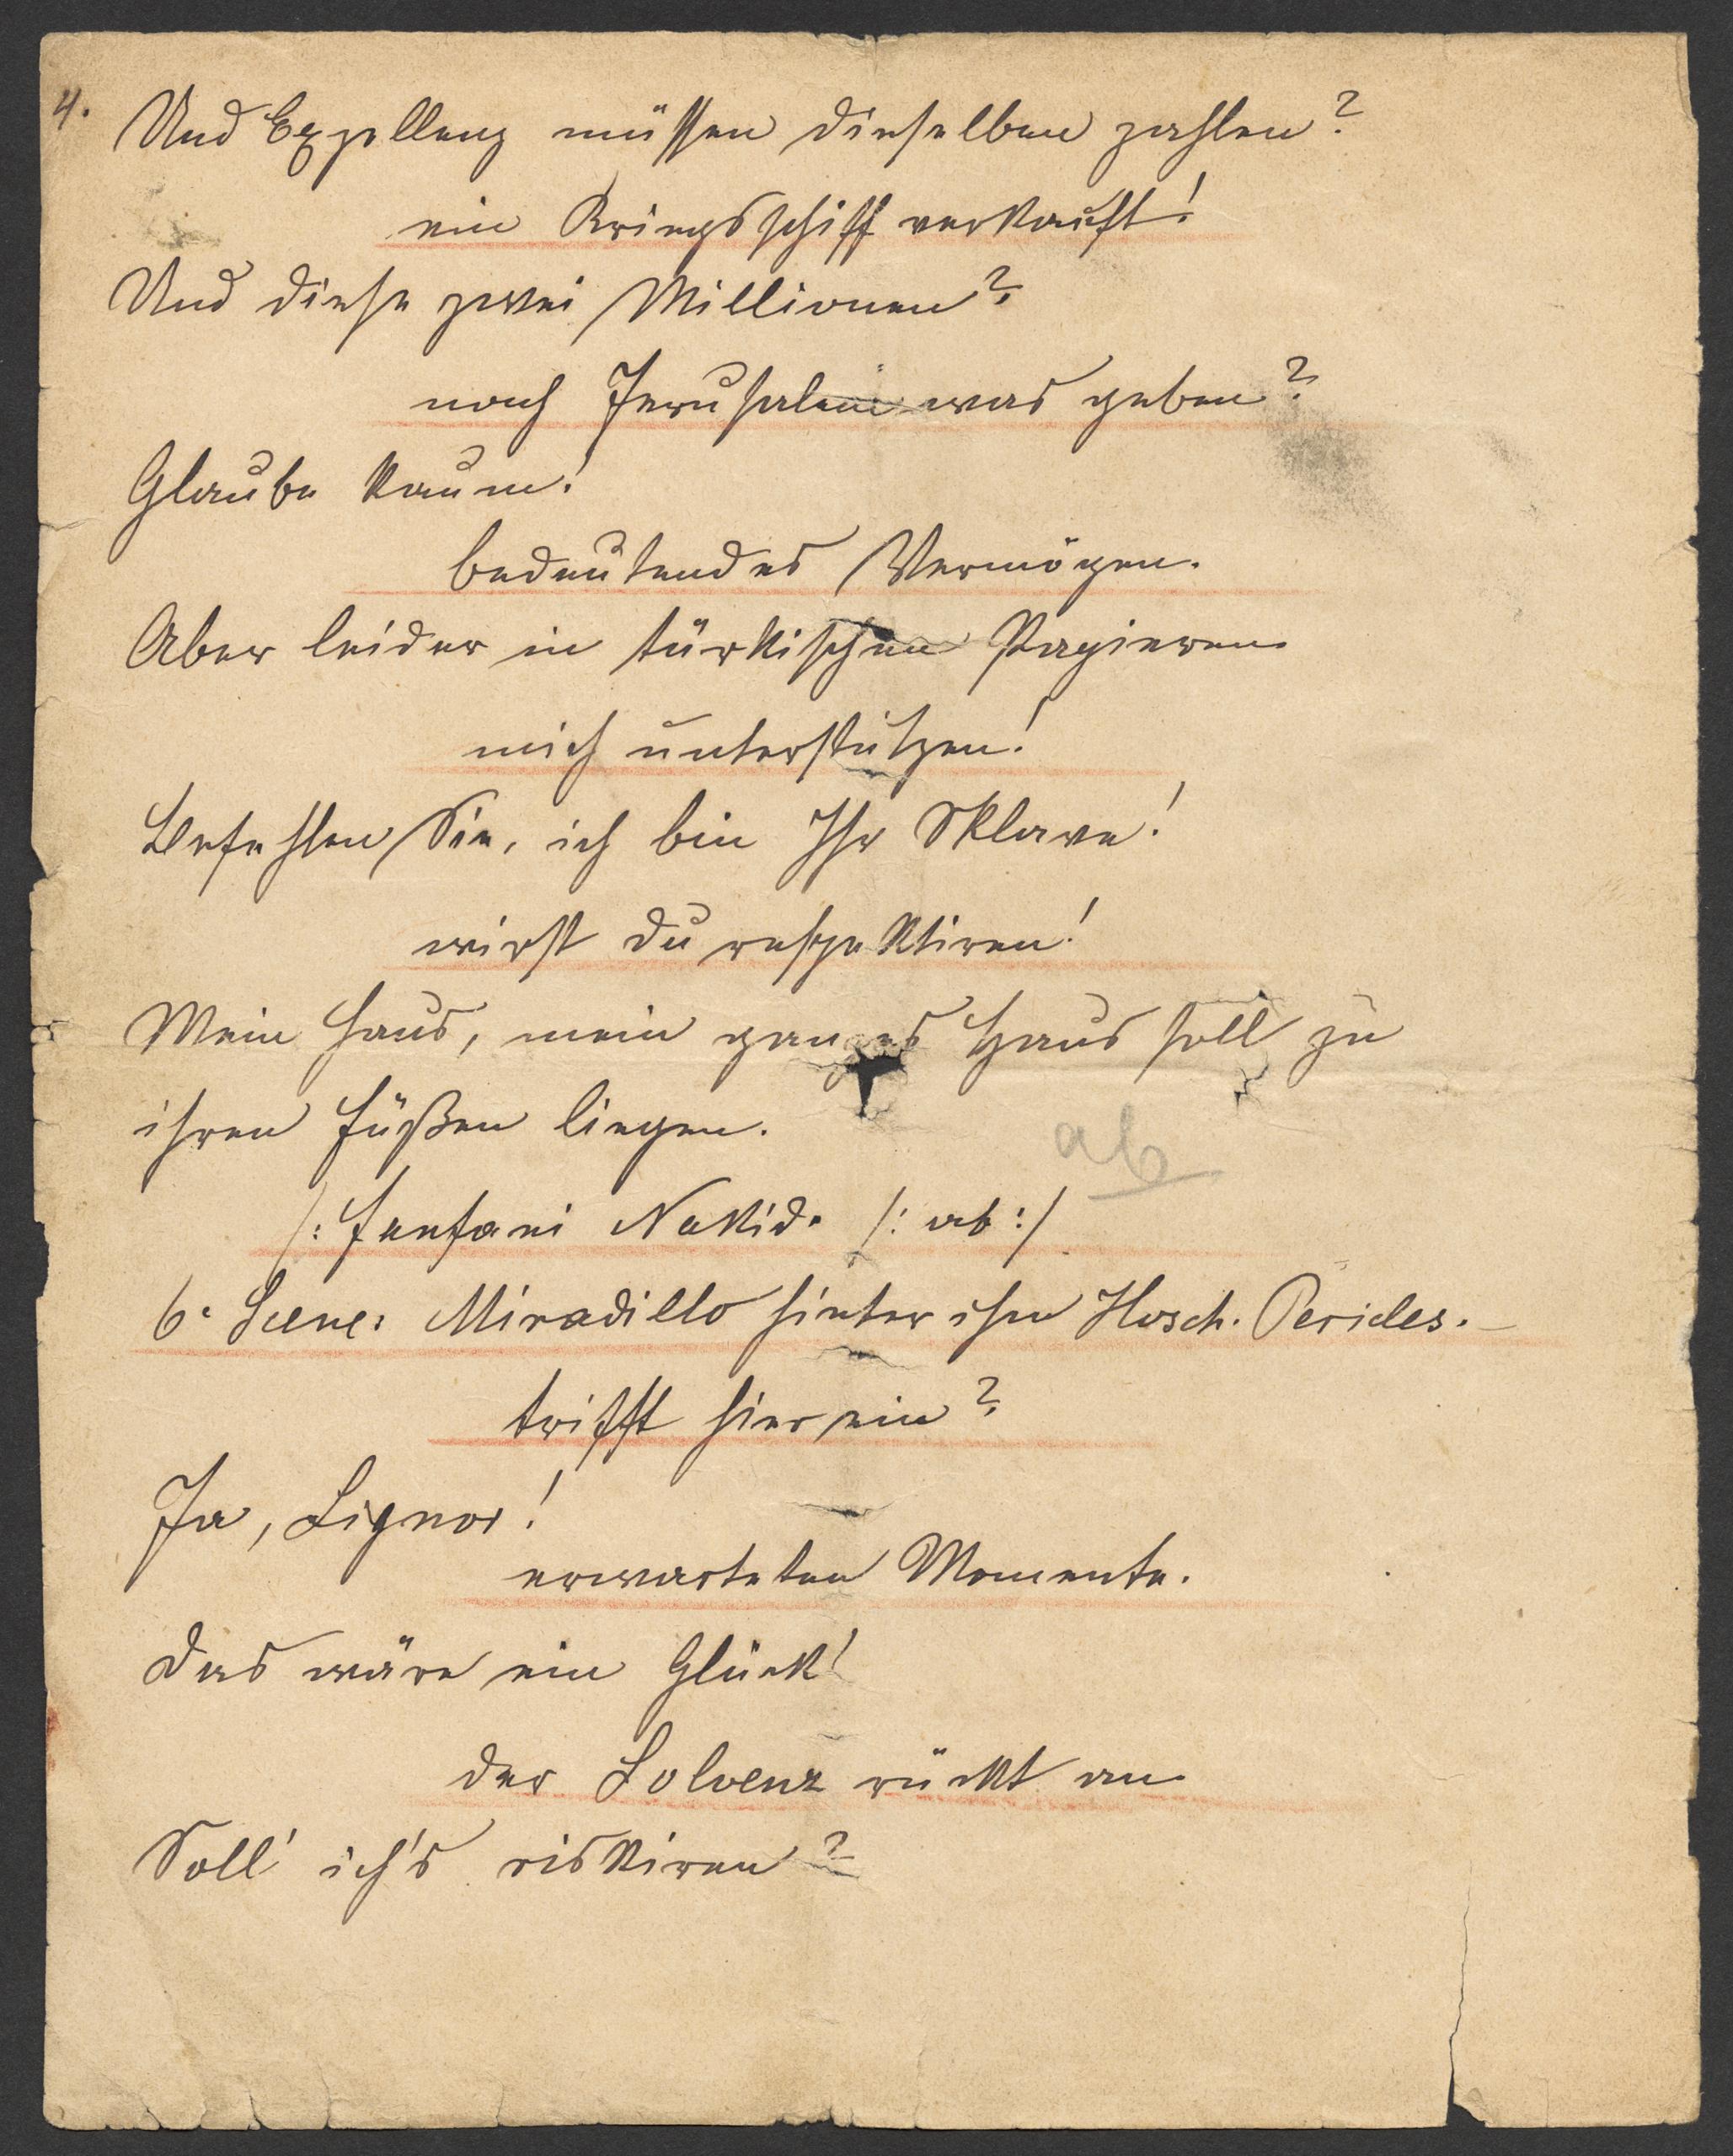 4.
Und Exzellenz müssen dieselben zahlen?
ein Kriegsschiff verkauft!
Und diese zwei Millionen?
nach Jerusalem was geben?
Glaube kaum!
bedeutendes Vermögen.
Aber leider in türkischen Papieren
mich unterstützen!
Befehlen Sie, ich bin Ihr Sklave!
wirst du respektiren!
Mein Haus, mein ganzes Haus soll zu
ihren Füßen liegen.
ab
/: Fenfani Nakid. /: ab :/
6. Scene: Miradillo hinter ihm Husch. Pericles.
trifft hier ein?
Ja, Signor!
erwarteten Momente.
Das wäre ein Glück!
der Solvenz rückt an
Soll' ich's riskiren?